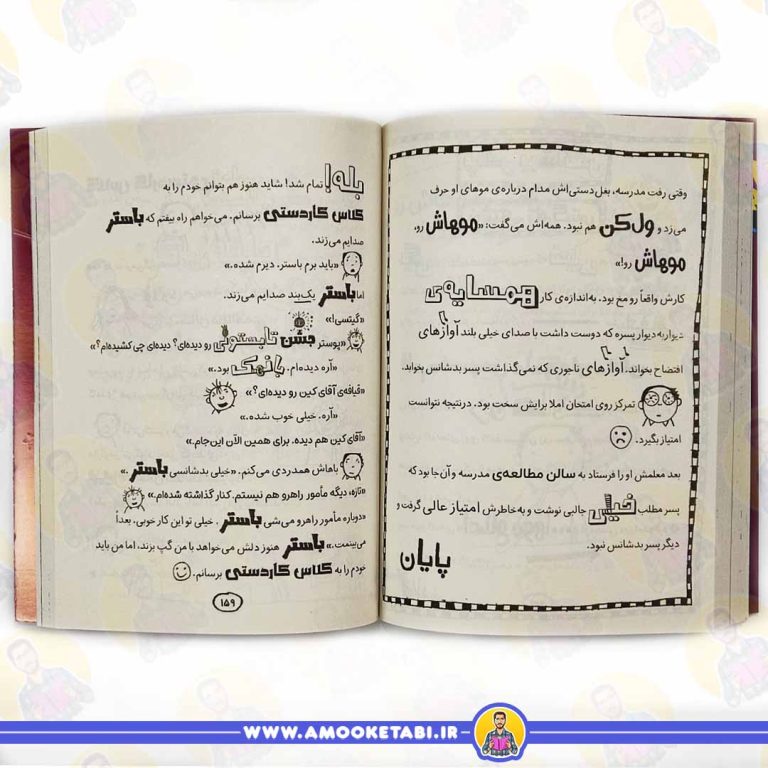 وقتی رفت مدرسه، بغل‌دستی‌اش مدام درباره‌ی موهای او حرف
می‌زد و ول‌کن هم نبود. همه‌اش می‌گفت: «موهاش رو،
موهاش رو!»
کارش واقعاً رو مخ بود. به‌اندازه‌ی کار همسایه‌ی
دیواربه‌دیوار پسره که دوست داشت با صدای خیلی بلند آوازهای
افتضاح بخواند. آوازهای ناجوری که نمی‌گذاشت پسر بدشانس بخوابد.
تمرکز روی امتحان املا برایش سخت بود. درنتیجه نتوانست
امتیاز بگیرد.
بعد معلمش او را فرستاد به سالن مطالعه‌ی مدرسه و آن‌جا بود که
پسر مطلب خیلی جالبی نوشت و به‌خاطرش امتیاز عالی گرفت و
دیگر پسر بدشانس نبود.
پایان
بله! تمام شد! شاید هنوز هم بتوانم خودم را به
کلاس کاردستی برسانم. می‌خواهم راه بیفتم که باستر
صدایم می‌زند.
«باید برم باستر. دیرم شده.»
اما باستر یک‌بند صدایم می‌زند.
«گیتسی!»
«پوستر جشن تابستونی رو دیده‌ای؟ دیده‌ای چی کشیده‌ام؟»
«آره دیده‌ام. بانمک بود.»
«قیافه‌ی آقای کین رو دیده‌ای؟»
«آره. خیلی خوب شده.»
«آقای کین هم دیده. برای همین الآن این‌جام.»
باهاش همدردی می‌کنم. «خیلی بدشانسی باستر.»
«تازه، دیگه مأمور راهرو هم نیستم. کنار گذاشته شده‌ام.»
«دوباره مأمور راهرو می‌شی باستر. خیلی تو این کار خوبی. بعداً
می‌بینمت.» باستر هنوز دلش می‌خواهد با من گپ بزند، اما من باید
خودم را به کلاس کاردستی برسانم.
۱۵۹
WWW.AMOOKETABI.IR